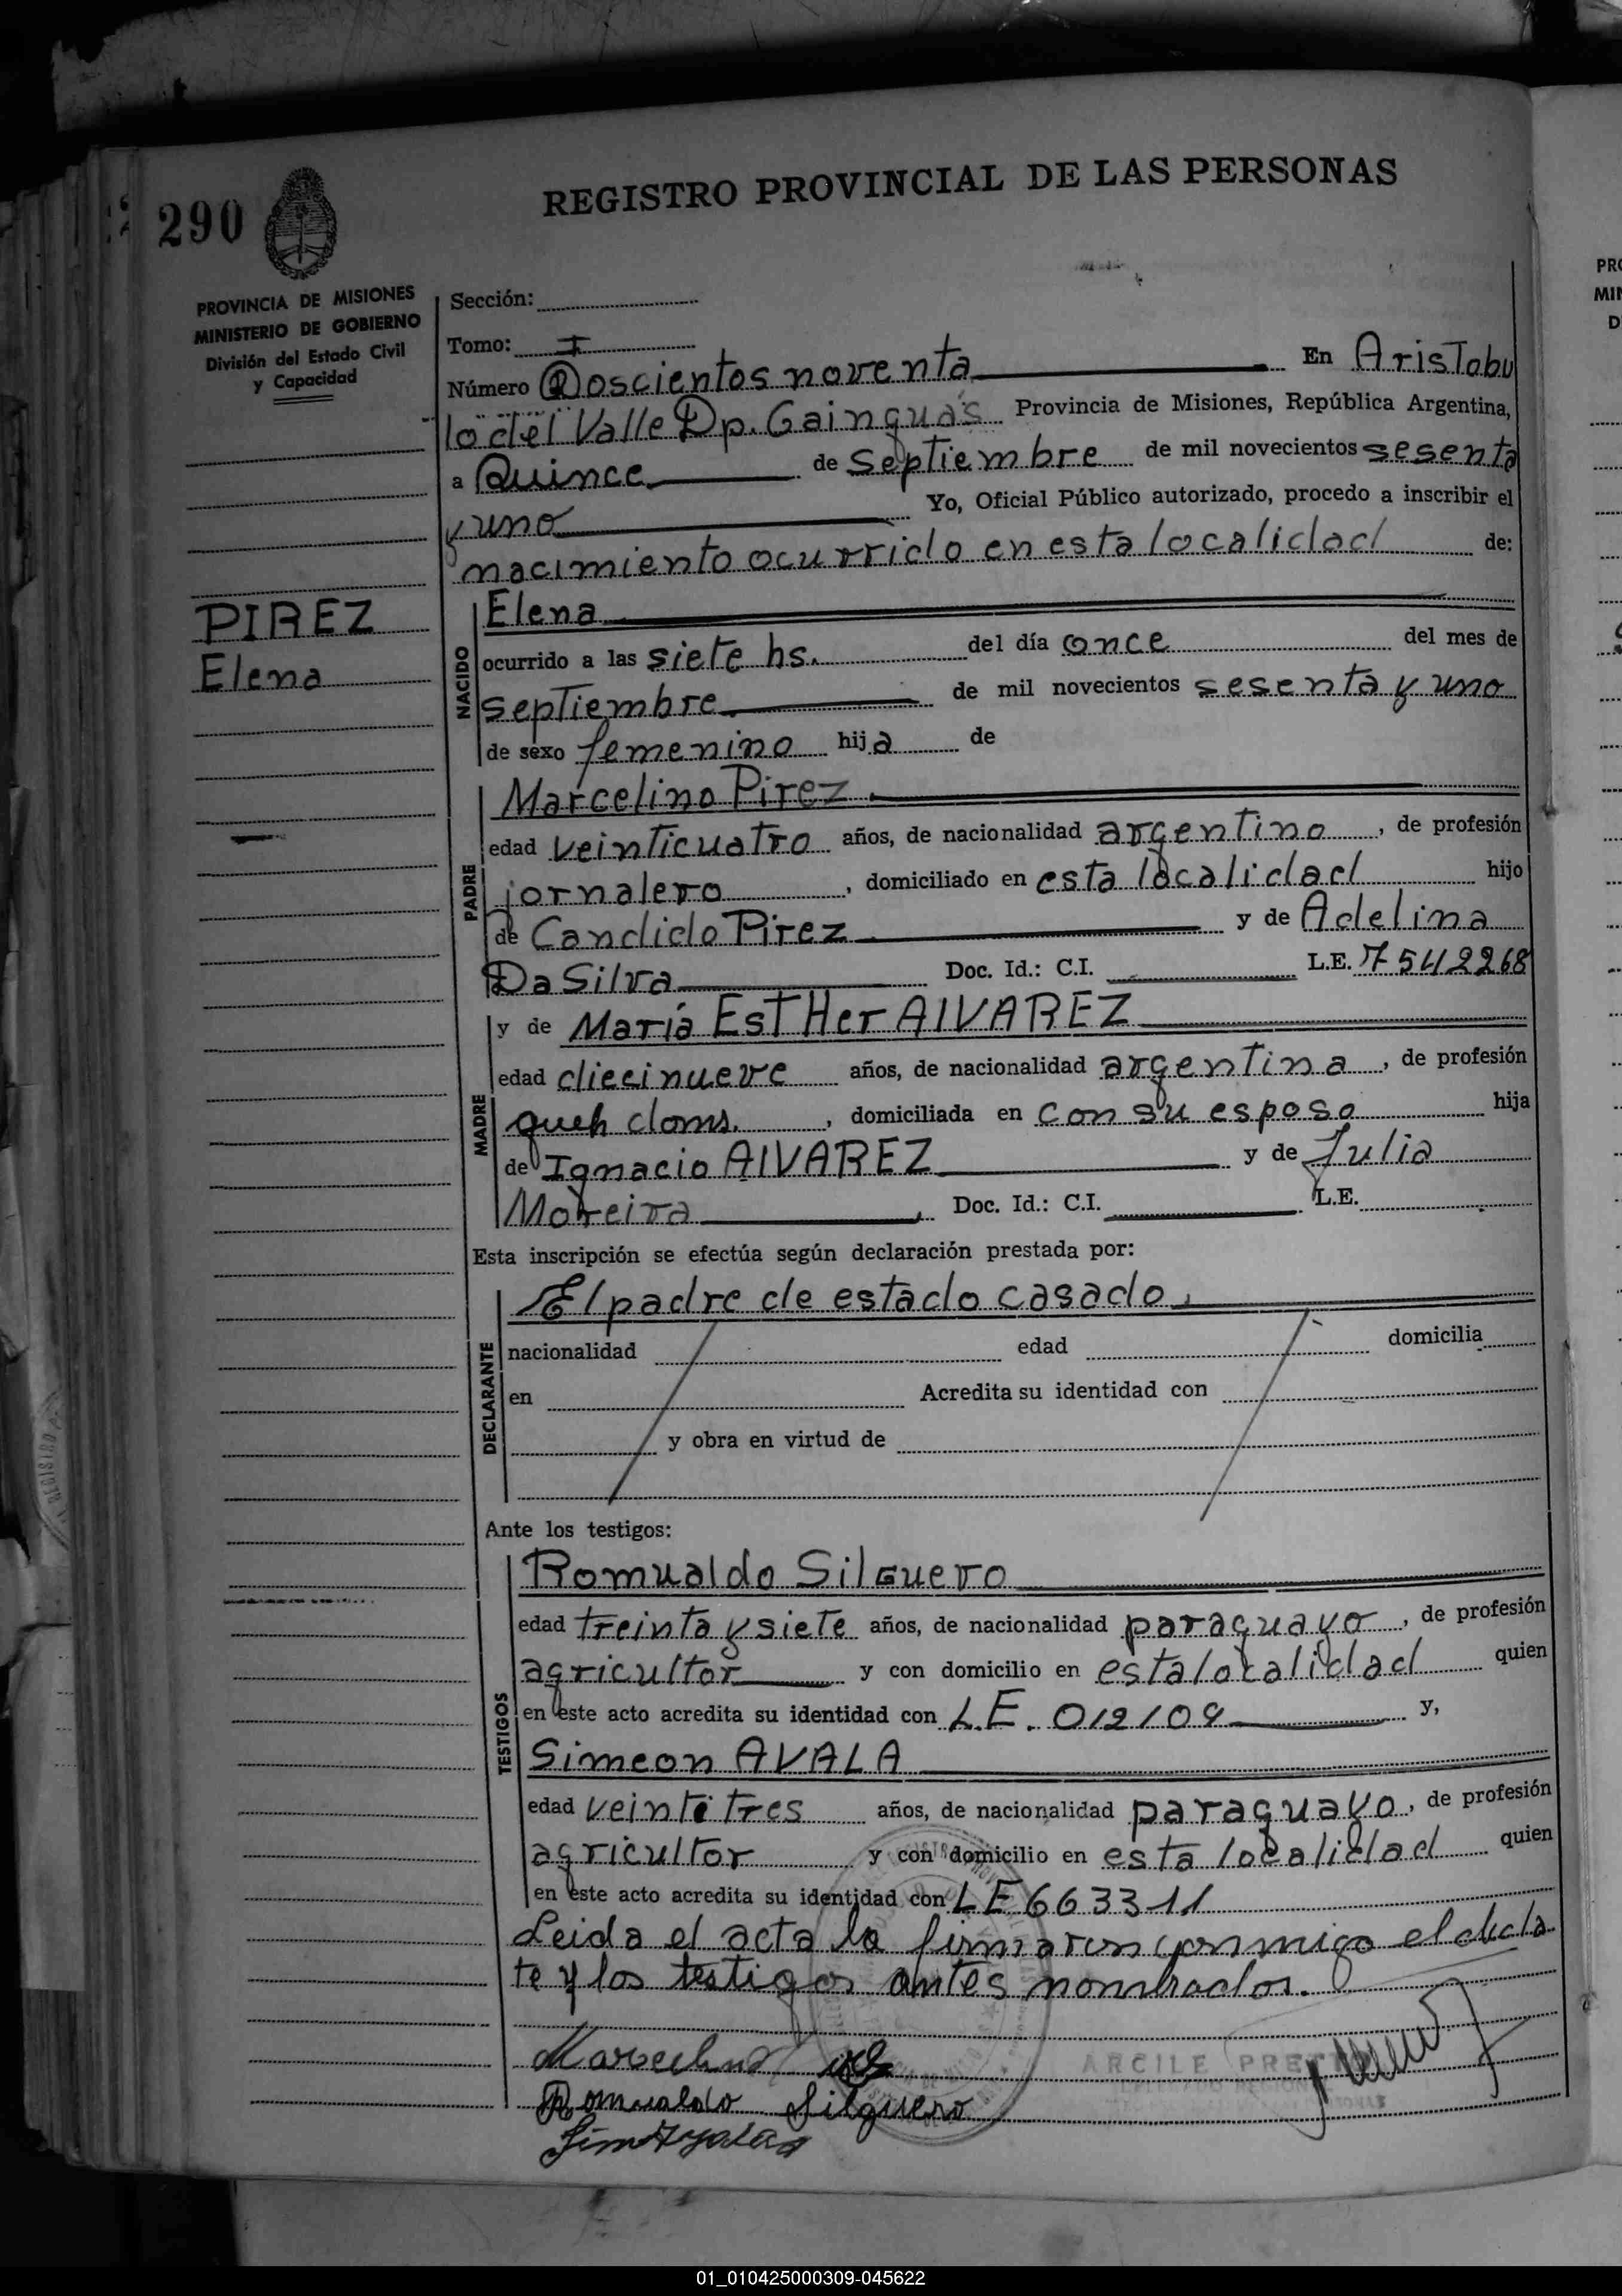 290
REGISTRO PROVINCIAL DE LAS PERSONAS
PROVINCIA DE MISIONES
MINISTERIO DE GOBIERNO
División del Estado Civil
y Capacidad
PIREZ
Elena
Sección:
Tomo: I
Número Doscientos noventa En Aristobu
lo del Valle Dp. Gainguás Provincia de Misiones, República Argentina,
a Quince de septiembre de mil novecientos sesenta
y uno Yo, Oficial Público autorizado, procedo a inscribir el
nacimiento ocurrido en esta localidad de:
NACIDO
Elena
ocurrido a las siete hs. del día once del mes de
septiembre de mil novecientos sesenta y uno
de sexo femenino hija de
PADRE
Marcelino Pirez
edad veinticuatro años, de nacionalidad argentino, de profesión
jornalero, domiciliado en esta localidad hijo
de Candido Pirez y de Adelina
Da Silva Doc. Id.: C.I. L.E. 7542268
MADRE
y de María EstHer AlVAREZ
edad diecinueve años, de nacionalidad argentina, de profesión
queh doms., domiciliada en con su esposo hija
de Ignacio AlVAREZ y de Julia
Moreira Doc. Id.: C.I. L.E.
Esta inscripción se efectúa según declaración prestada por:
DECLARANTE
El padre de estado casado
nacionalidad edad domicilia
en Acredita su identidad con
y obra en virtud de
Ante los testigos:
TESTIGOS
Romualdo Silguero
edad treinta y siete años, de nacionalidad paraguayo, de profesión
agricultor y con domicilio en esta localidad quien
en este acto acredita su identidad con L.E. y,
Simeon AYALA
edad veintitres años, de nacionalidad paraguayo, de profesión
agricultor y con domicilio en esta localidad quien
en este acto acredita su identidad con LE 663311
Leida el acta la firmaron conmigo el decla
te y los testigos antes nombrados.
ARCILE PRETTO
Romualdo Silguero
Sim Ayala
01_010425000309-045622